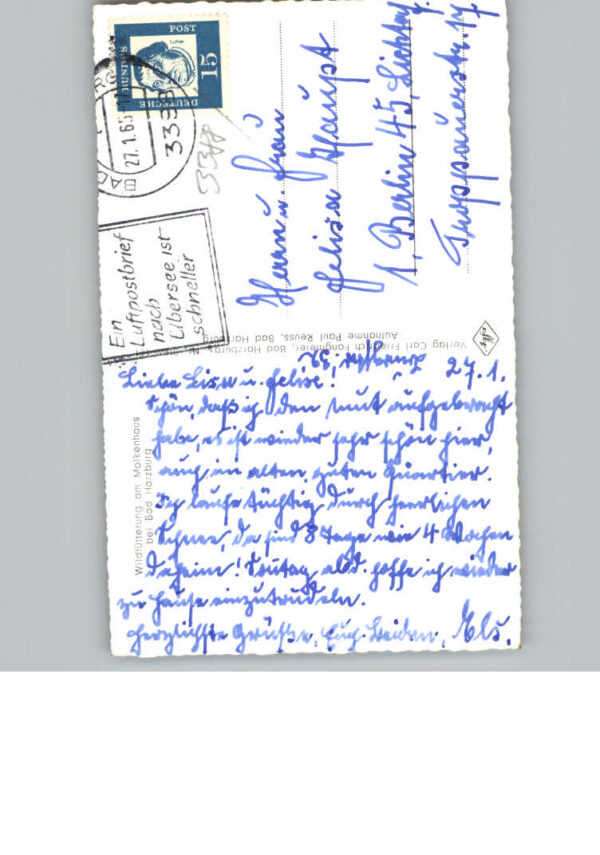 DEUTSCHE BUNDESPOST
15
27.1.65
3388
3388
Ein
Luftpostbrief
nach
Übersee ist
schneller
Herrn u. Frau
Felix Haupt
1 Berlin 45, Lichterf.
Troppauerstr. 17
Verlag Carl Friedrich Fangmeier, Bad Harzburg
Aufnahme Paul Reuss, Bad Harzburg
Wildfütterung am Molkenhaus
bei Bad Harzburg
27.1.
Liebe Lisa u. Felix!
Schön, daß ich den Mut aufgebracht
habe, es ist wieder sehr schön hier,
auch im alten, guten Quartier.
Ich laufe tüchtig durch herrlichen
Schnee, da sind 8 Tage wie 4 Wochen
daheim! Sonntag abd. hoffe ich wieder
zu Hause einzutrudeln.
Herzlichste Grüße, Euch Beiden, Els.